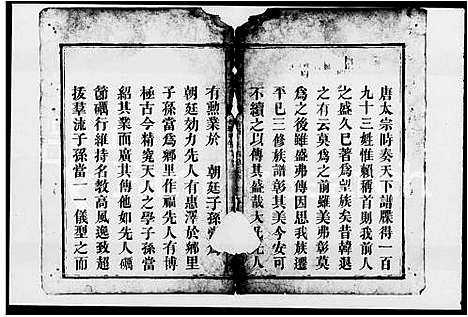 唐太宗時奏天下譜牒得一百
九十三姓惟賴稱首則我前人
之盛久已著為望族矣昔韓退
之有云莫為之前雖美弗彰莫
為之後雖盛弗傳因思我族遷
平已三修族譜彰其美今安可
不續之以傳其盛哉大先人
有勲業於　朝廷子孫
朝廷効力先人有惠澤於鄉里
子孫當為鄉里作福先人有博
極古今精究天人之學子孫當
紹其業而廣其傳他如先人礪
節礪行維持名教高風逸致超
拔羣流子孫當一一儀型之而